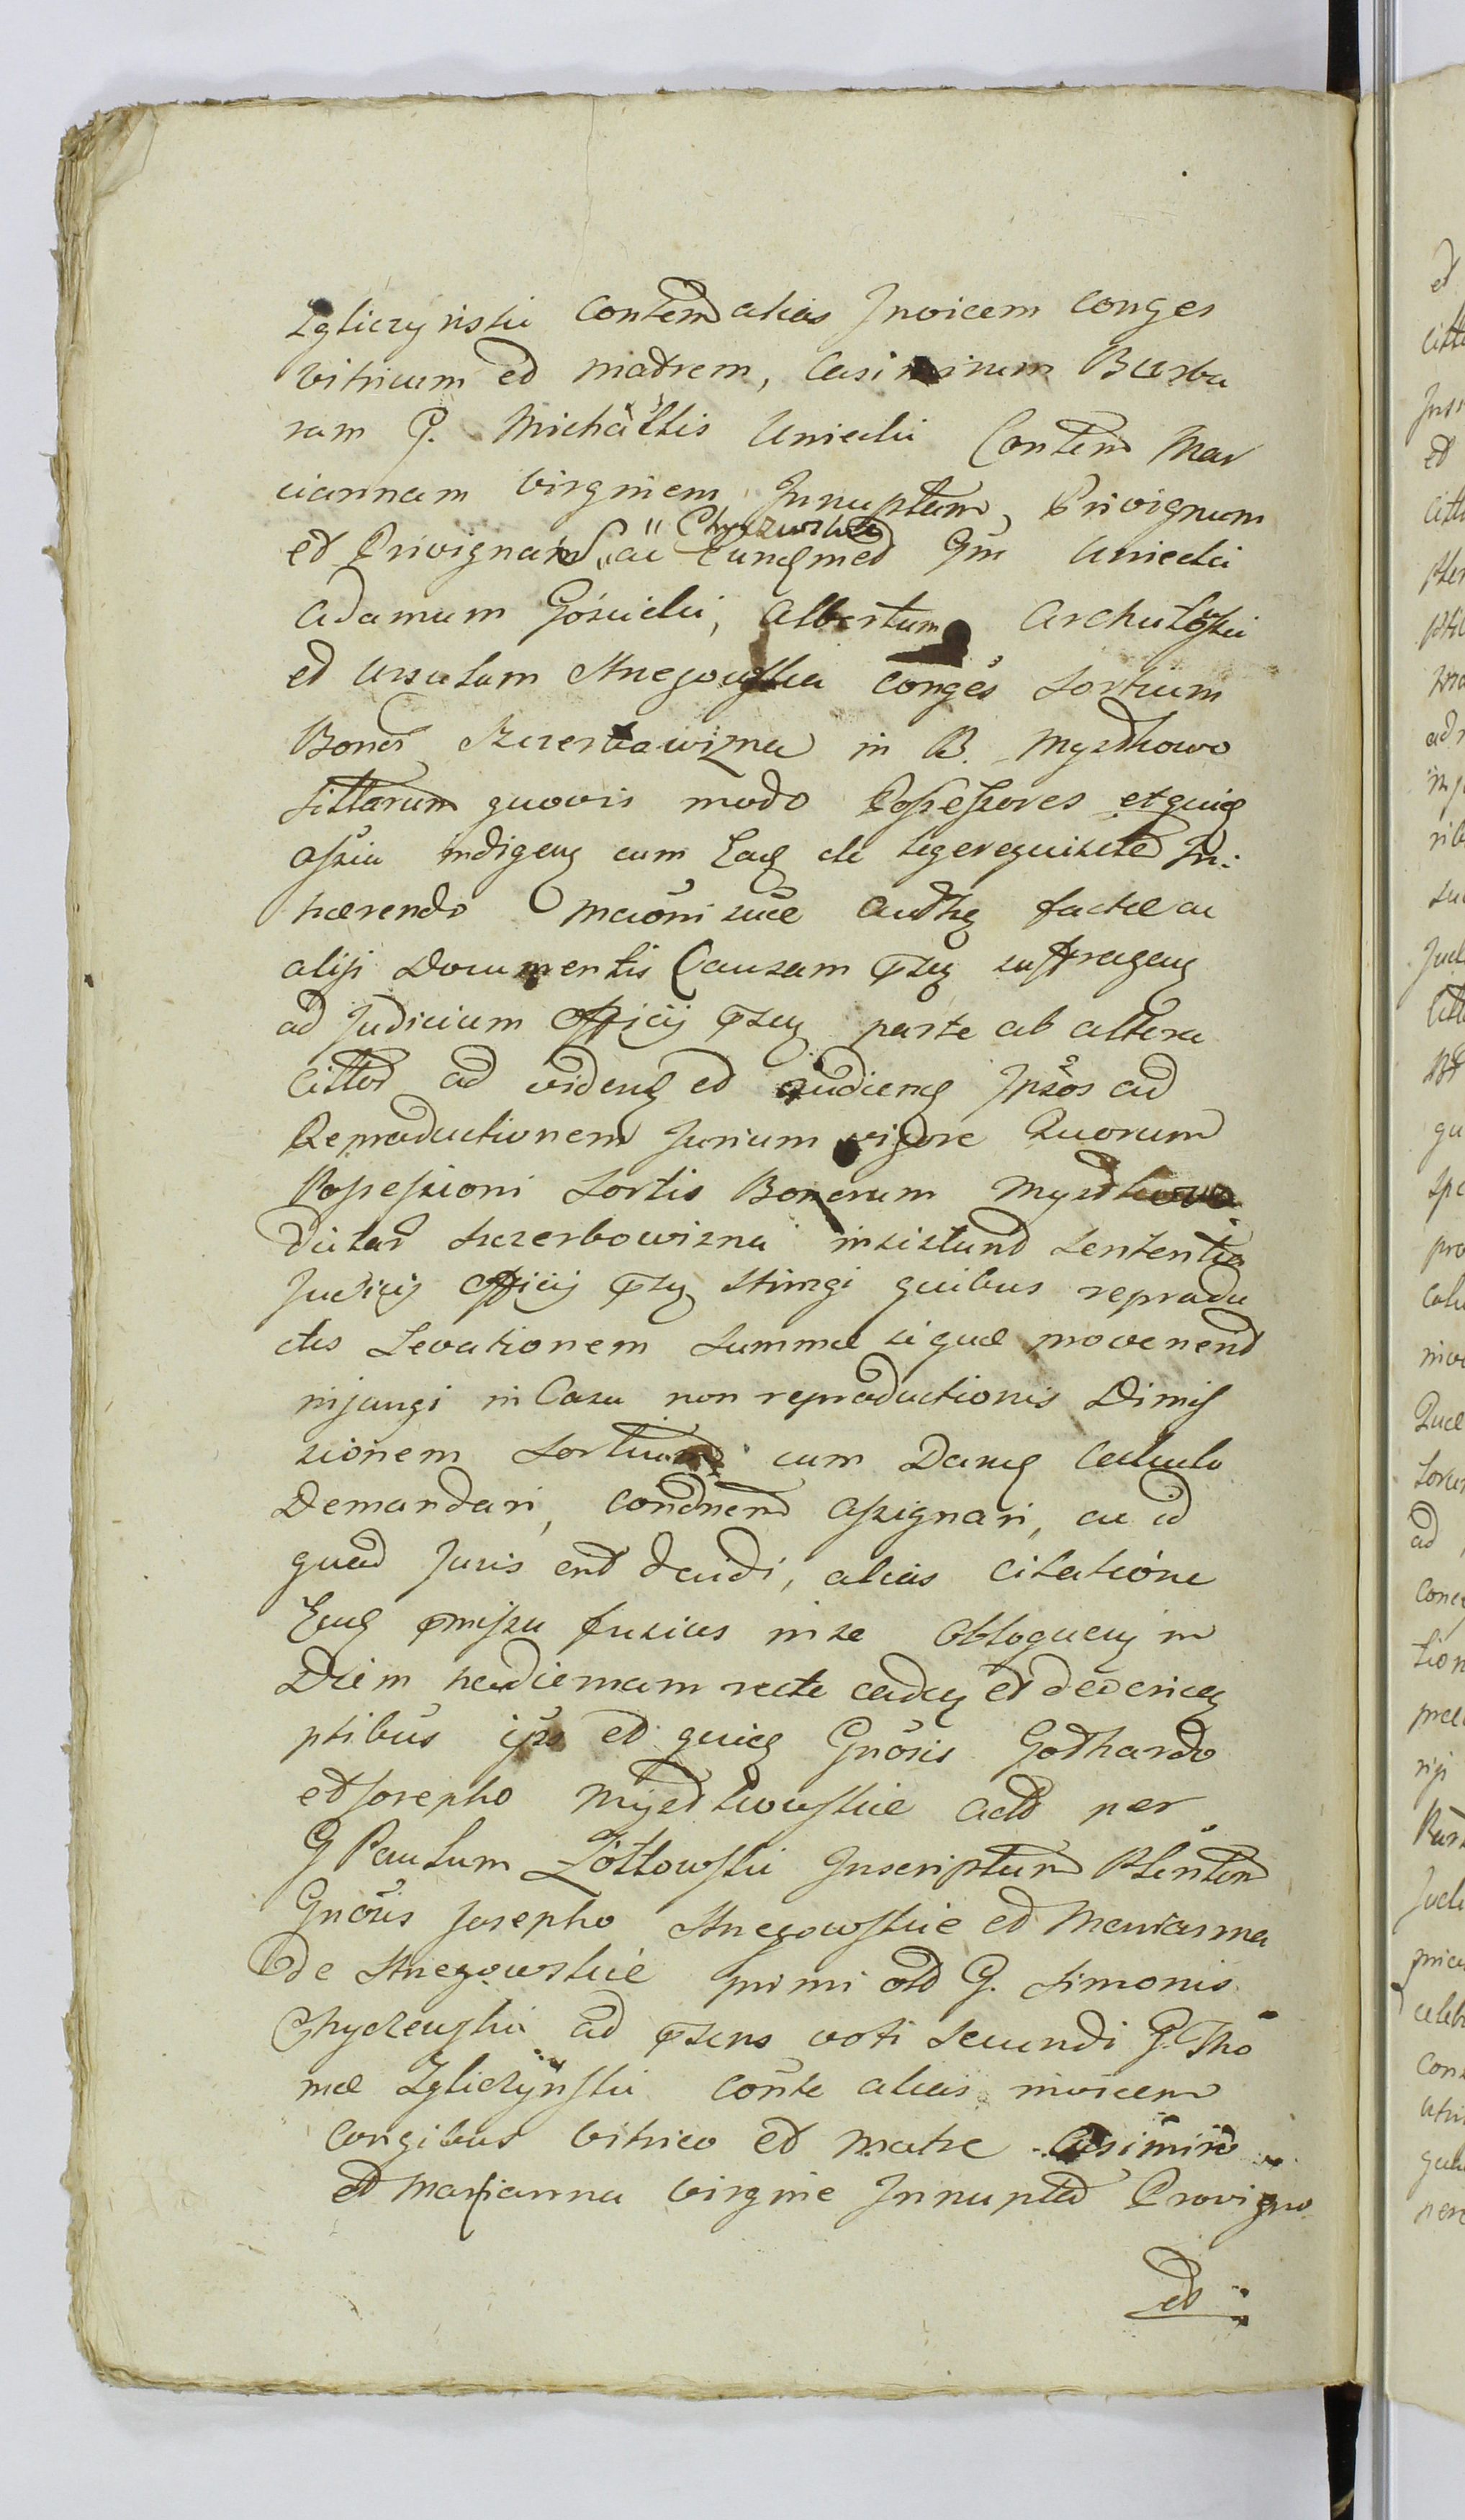 Zgliczynski Contem alias Invicem Conges
vitricum et matrem, Casimirum Barba
ram G. Michaelis Uniecki Contem Mar
ciannam virginem Innuptam, Privignum
et Privignam ac Eundmed Gm Uniecki
Chyczewskie
Adamum Gościcki, Albertum Archutoski
et Ursulam Strzegowska Conges Sortium
Bonor Szczerbowizna in B. Mysłkowo
Sittarum quovis modo Possessores etquiq
assiu indigeng cum Eaq de lege requisite In:
hærendo Maoni suæ Authę factæ ac
alijs Documentis Causam pseg suffrageng
ad Judicium Officij pseg parte ab altera
Cittos ad videng et audieng Ipsos ad
Reproductionem Jurium vigore Quorum
Possessioni Sortis Bonorum Mysłkowo
dictas Szczerbowizna insistund Sententia
Judicij Officij psg Stringi quibus reprodu
ctis Levationem Summæ si quæ provenend
injungi in Casu non reproductionis Dimis
sionem Sortium cum Dang Calculo
Demandari, Condnend Assignari, ac id
quod Juris erit decidi, alias Citatione
Eaq pmissa fusius in se Obloqueng in
Diem hodiernam recte cadeg et decerneg
ptibus ips et quieg Gnosis Gothardo
et Josepho Mysłkowskie acto per
G Paulum Zołtowski Inscriptum Plenten
Gnosis Josepho Strzegowskie et Marianna
de Strzegowskie primi olo G. Simonis
Chyczewski ad psens voti Secundi G. Tho
mæ Zgliczynski Conte alias invicem
Congibus vitrico et matre Casimiro
et Marianna virgine Innupta Provigno
et